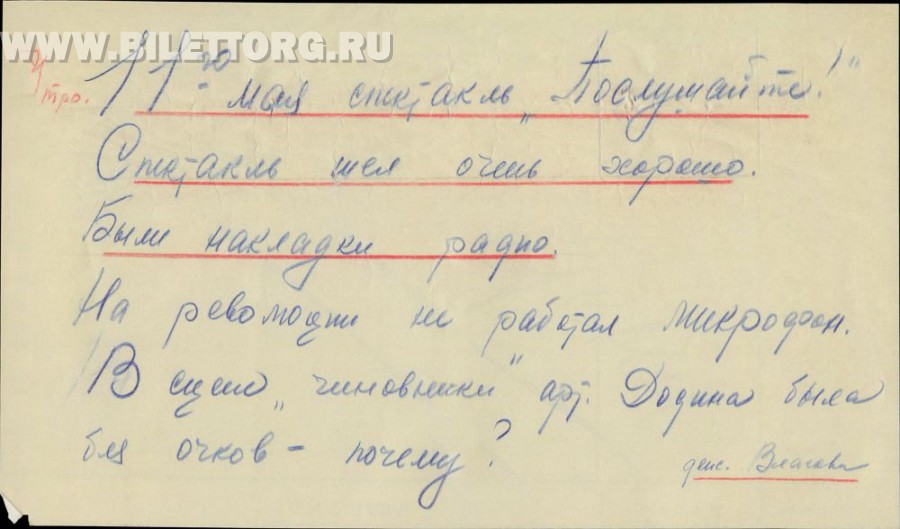 WWW.BILETTORG.RU
Утро.
11-го мая спектакль „Послушайте!"
Спектакль шел очень хорошо.
Были накладки радио.
На революции не работал микрофон.
В сцене „чиновники" арт. Додина была
без очков – почему?
деж. Власова